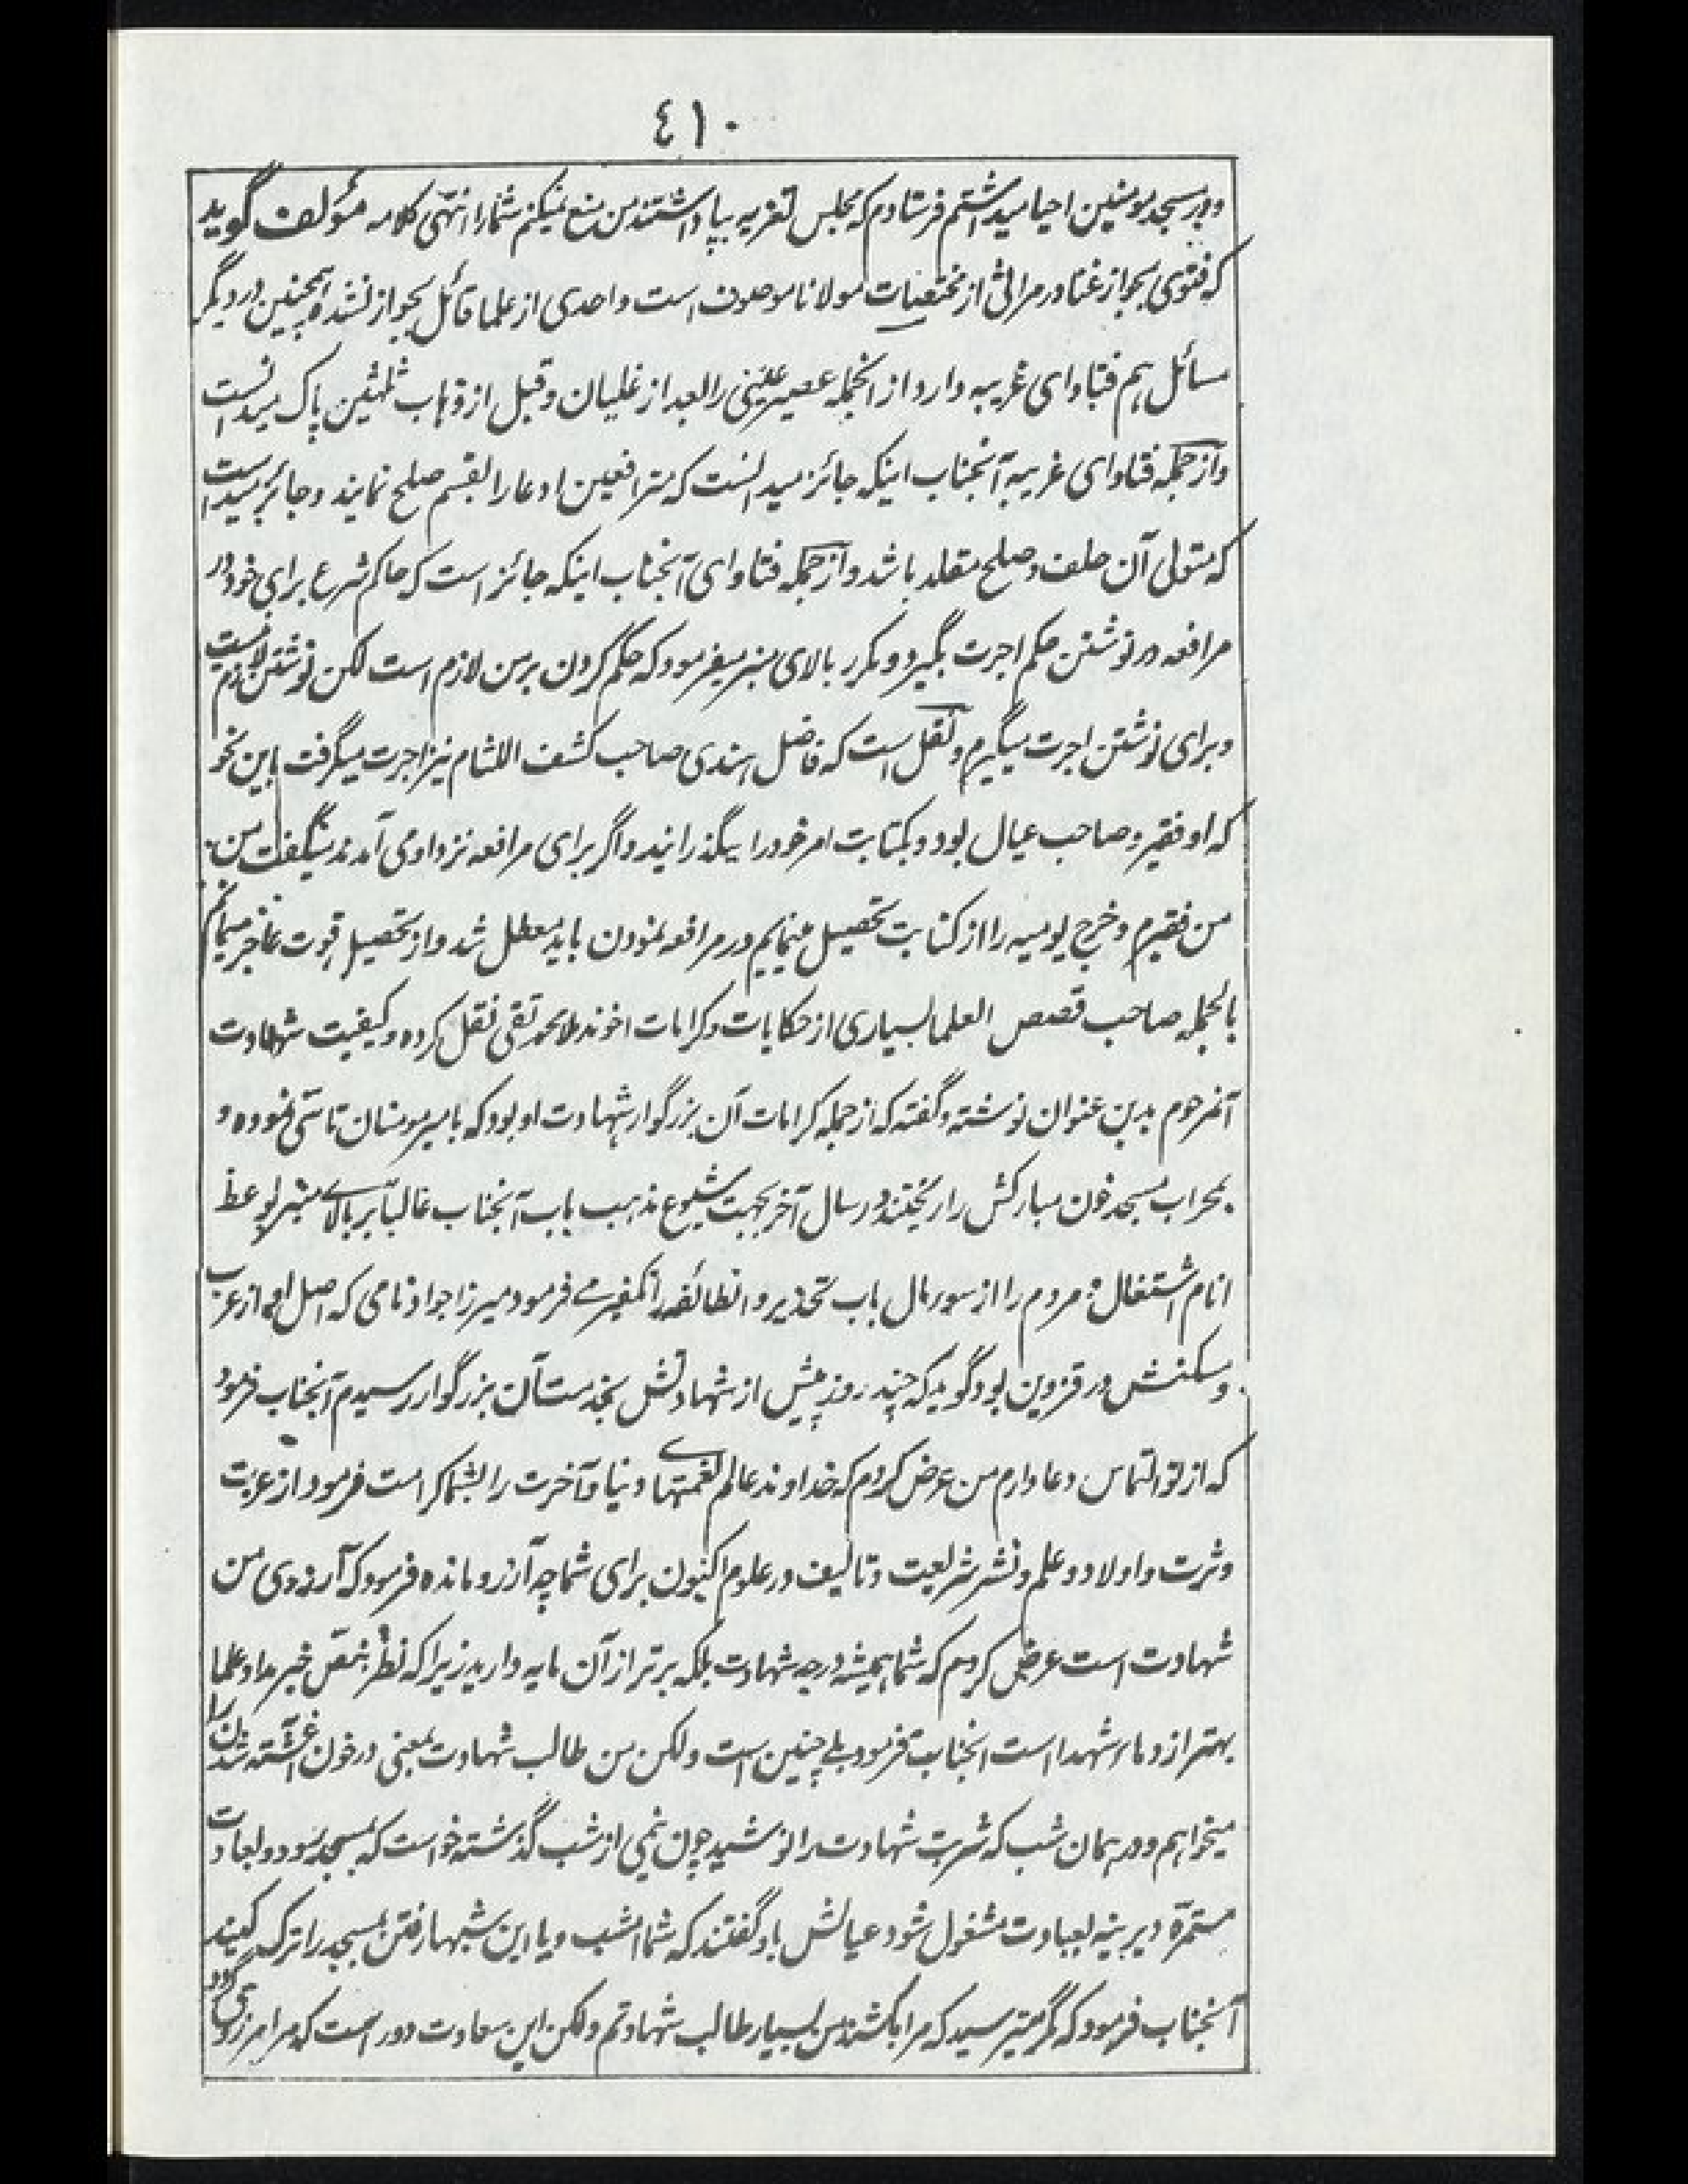 ٤١٠
و در مسجد مومنین احیا میداشتم فرستادم که مجلس تعزیه بپا داشتند من منع نمیکنم شما را انتهی کلامه مؤلف گوید
که فتوی بجواز غنا در مراثی از مختصات مولانا موصوف است و احدی از علما قائل بجواز نشده همچنین در دیگر
مسائل هم فتاوای غریبه دارد از انجمله عصیر عنبی را بعد از غلیان و قبل از ذهاب ثلثین پاک میدانست
و از جمله فتاوای غریبه آنجناب اینکه جائز میدانست که مترافعین ادعا را بقسم صلح نمایند و جائز میدانست
که متولی آن حلف و صلح مقلد باشد و از جمله فتاوای آنجناب اینکه جائز است که حاکم شرع برای خود در
مرافعه در نوشتن حکم اجرت بگیرد و مکرر بالای منبر میفرمود که حکم کردن بر من لازم است لکن نوشتن لازم نیست
و برای نوشتن اجرت میگیرم و نقل است که فاضل هندی صاحب کشف اللثام نیز اجرت میگرفت باین نحو
که او فقیر و صاحب عیال بود و بکتابت امر خود را میگذرانید و اگر برای مرافعه نزد او می آمدند میگفت من
من فقیرم و خرج یومیه را از کتابت تحصیل مینمایم در مرافعه نمودن باید معطل شد و از تحصیل قوت عاجز میمانم
بالجمله صاحب قصص العلما بسیاری از حکایات و کرامات اخوند ملا محمد تقی نقل کرده و کیفیت شهادت
آنمرحوم بدین عنوان نوشته و گفته که از جمله کرامات آن بزرگوار شهادت او بود که بامیر مومنان تاسی نموده و
بمحراب مسجد خون مبارکش را ریختند و در سال آخر بجهت شیوع مذهب باب آنجناب غالباً بر بالای منبر بوعظ
انام اشتغال و مردم را از سوء مال باب تحذیر و انطائفه را تکفیر می فرمود میرزا جواد نامی که اصل او از عرب
و سکنش در قزوین بود گوید که چند روز پیش از شهادتش بخدمت آن بزرگوار رسیدم آنجناب فرمود
که از تو التماس دعا دارم من عرض کردم که خداوند عالم نعمتهای دنیا و آخرت را بشما کرامت فرمود از عزت
و ثرت و اولاد و علم و نشر شریعت و تالیف در علوم اکنون برای شما چه آرزو مانده فرمود که آرزوی من
شهادت است عرض کردم که شما همیشه درجه شهادت بلکه برتر از آن مایه دارید زیرا که نظر بنص خبر مداد علما
بهتر از دماء شهدا است انجناب فرمود بلے چنین است ولکن من طالب شهادت بمعنی در خون آغشته شدن را
میخواهم و در همان شب که شربت شهادت را نوشید چون نیمی از شب گذشته خواست که بمسجد رود و بعادت
مستمرّه دیرینه بعبادت مشغول شود عیالش باو گفتند که شما امشب و یا این شبها رفتن بمسجد را ترک کنید
آنجناب فرمود که مگر میترسید که مرا بکشند من بسیار طالب شهادتم ولکن این سعادت دور است که مرا مرزوق گردد